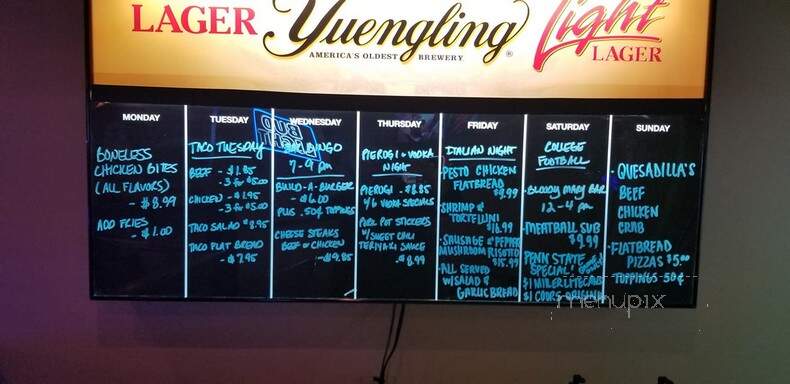 LAGER Yuengling Light
AMERICA'S OLDEST BREWERY
LAGER
MONDAY
BONELESS
CHICKEN BITES
(ALL FLAVORS)
- $8.99
ADD FRIES
- $1.00
TUESDAY
TACO TUESDAY
BEEF - $1.85
- 3 for $5.00
CHICKEN - $1.95
- 3 for $5.00
TACO SALAD - $8.95
TACO FLAT BREAD
- $7.95
BUD
LIGHT
WEDNESDAY
BINGO
7-9 pm
BUILD-A-BURGER
- $6.00
PLUS .50¢ TOPPINGS
CHEESE STEAKS
BEEF or CHICKEN
- $9.85
THURSDAY
PIEROGI & VODKA
NIGHT
PIEROGI - $8.85
VODKA SPECIALS
PORK POT STICKERS
W/SWEET CHILI
TERIYAKI SAUCE
- $8.99
FRIDAY
ITALIAN NIGHT
PESTO CHICKEN
FLATBREAD
$9.99
- SHRIMP &
TORTELLINI
$16.99
- SAUSAGE & PEPPER
MUSHROOM RISOTTO
$15.99
- ALL SERVED
W/SALAD &
GARLIC BREAD
SATURDAY
COLLEGE
FOOTBALL
- BLOODY MARY BAR
12-4 pm
- MEATBALL SUB
$9.99
PENN STATE
SPECIAL
$1 MILLER LITE CANS
$1 COORS ORIGINAL
SUNDAY
- QUESADILLA'S
BEEF
CHICKEN
CRAB
- FLATBREAD
PIZZAS $5.00
TOPPINGS - 50¢
menupix